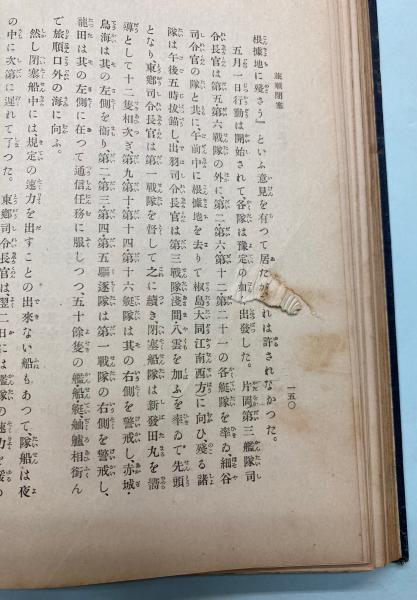 旅順閉塞
一五〇
根據地に殘さう』といふ意見を有つて居たが
れは許されなかつた。
五月一日行動は開始されて各隊は豫定の如
出發した。片岡第三艦隊司
令長官は第五第六戰隊の外に第二、第六、第十二第二十一の各艇隊を率ゐ、細谷
司令官の隊と共に、午前中に根據地を去りて椒島(大同江南西方)に向ひ、殘る諸
隊は午後五時拔錨し、出羽司令長官は第三戰隊(淺間八雲を加ふ)を率ゐて先頭
となり、東鄕司令長官は第一戰隊を督して之に續き、閉塞船隊は新發田丸を嚮
導として十二隻相次ぎ、第九、第十第十四、第十六艇隊は其の右側を警戒し、赤城・
鳥海は其の左側を衞り、第二、第三、第四、第五驅逐隊は第一戰隊の右側を警戒し、
龍田は其の左側に在つて通信任務に服しつつ、五十餘隻の艦船艇、舳艫相銜ん
で旅順口外の海に向ふ。
然し閉塞船中には規定の速力を出すことの出來ない船もあつて、隊船は夜
の中に次第に遲れて了つた。東鄕司令長官は翌二日には艦隊の速力を緩